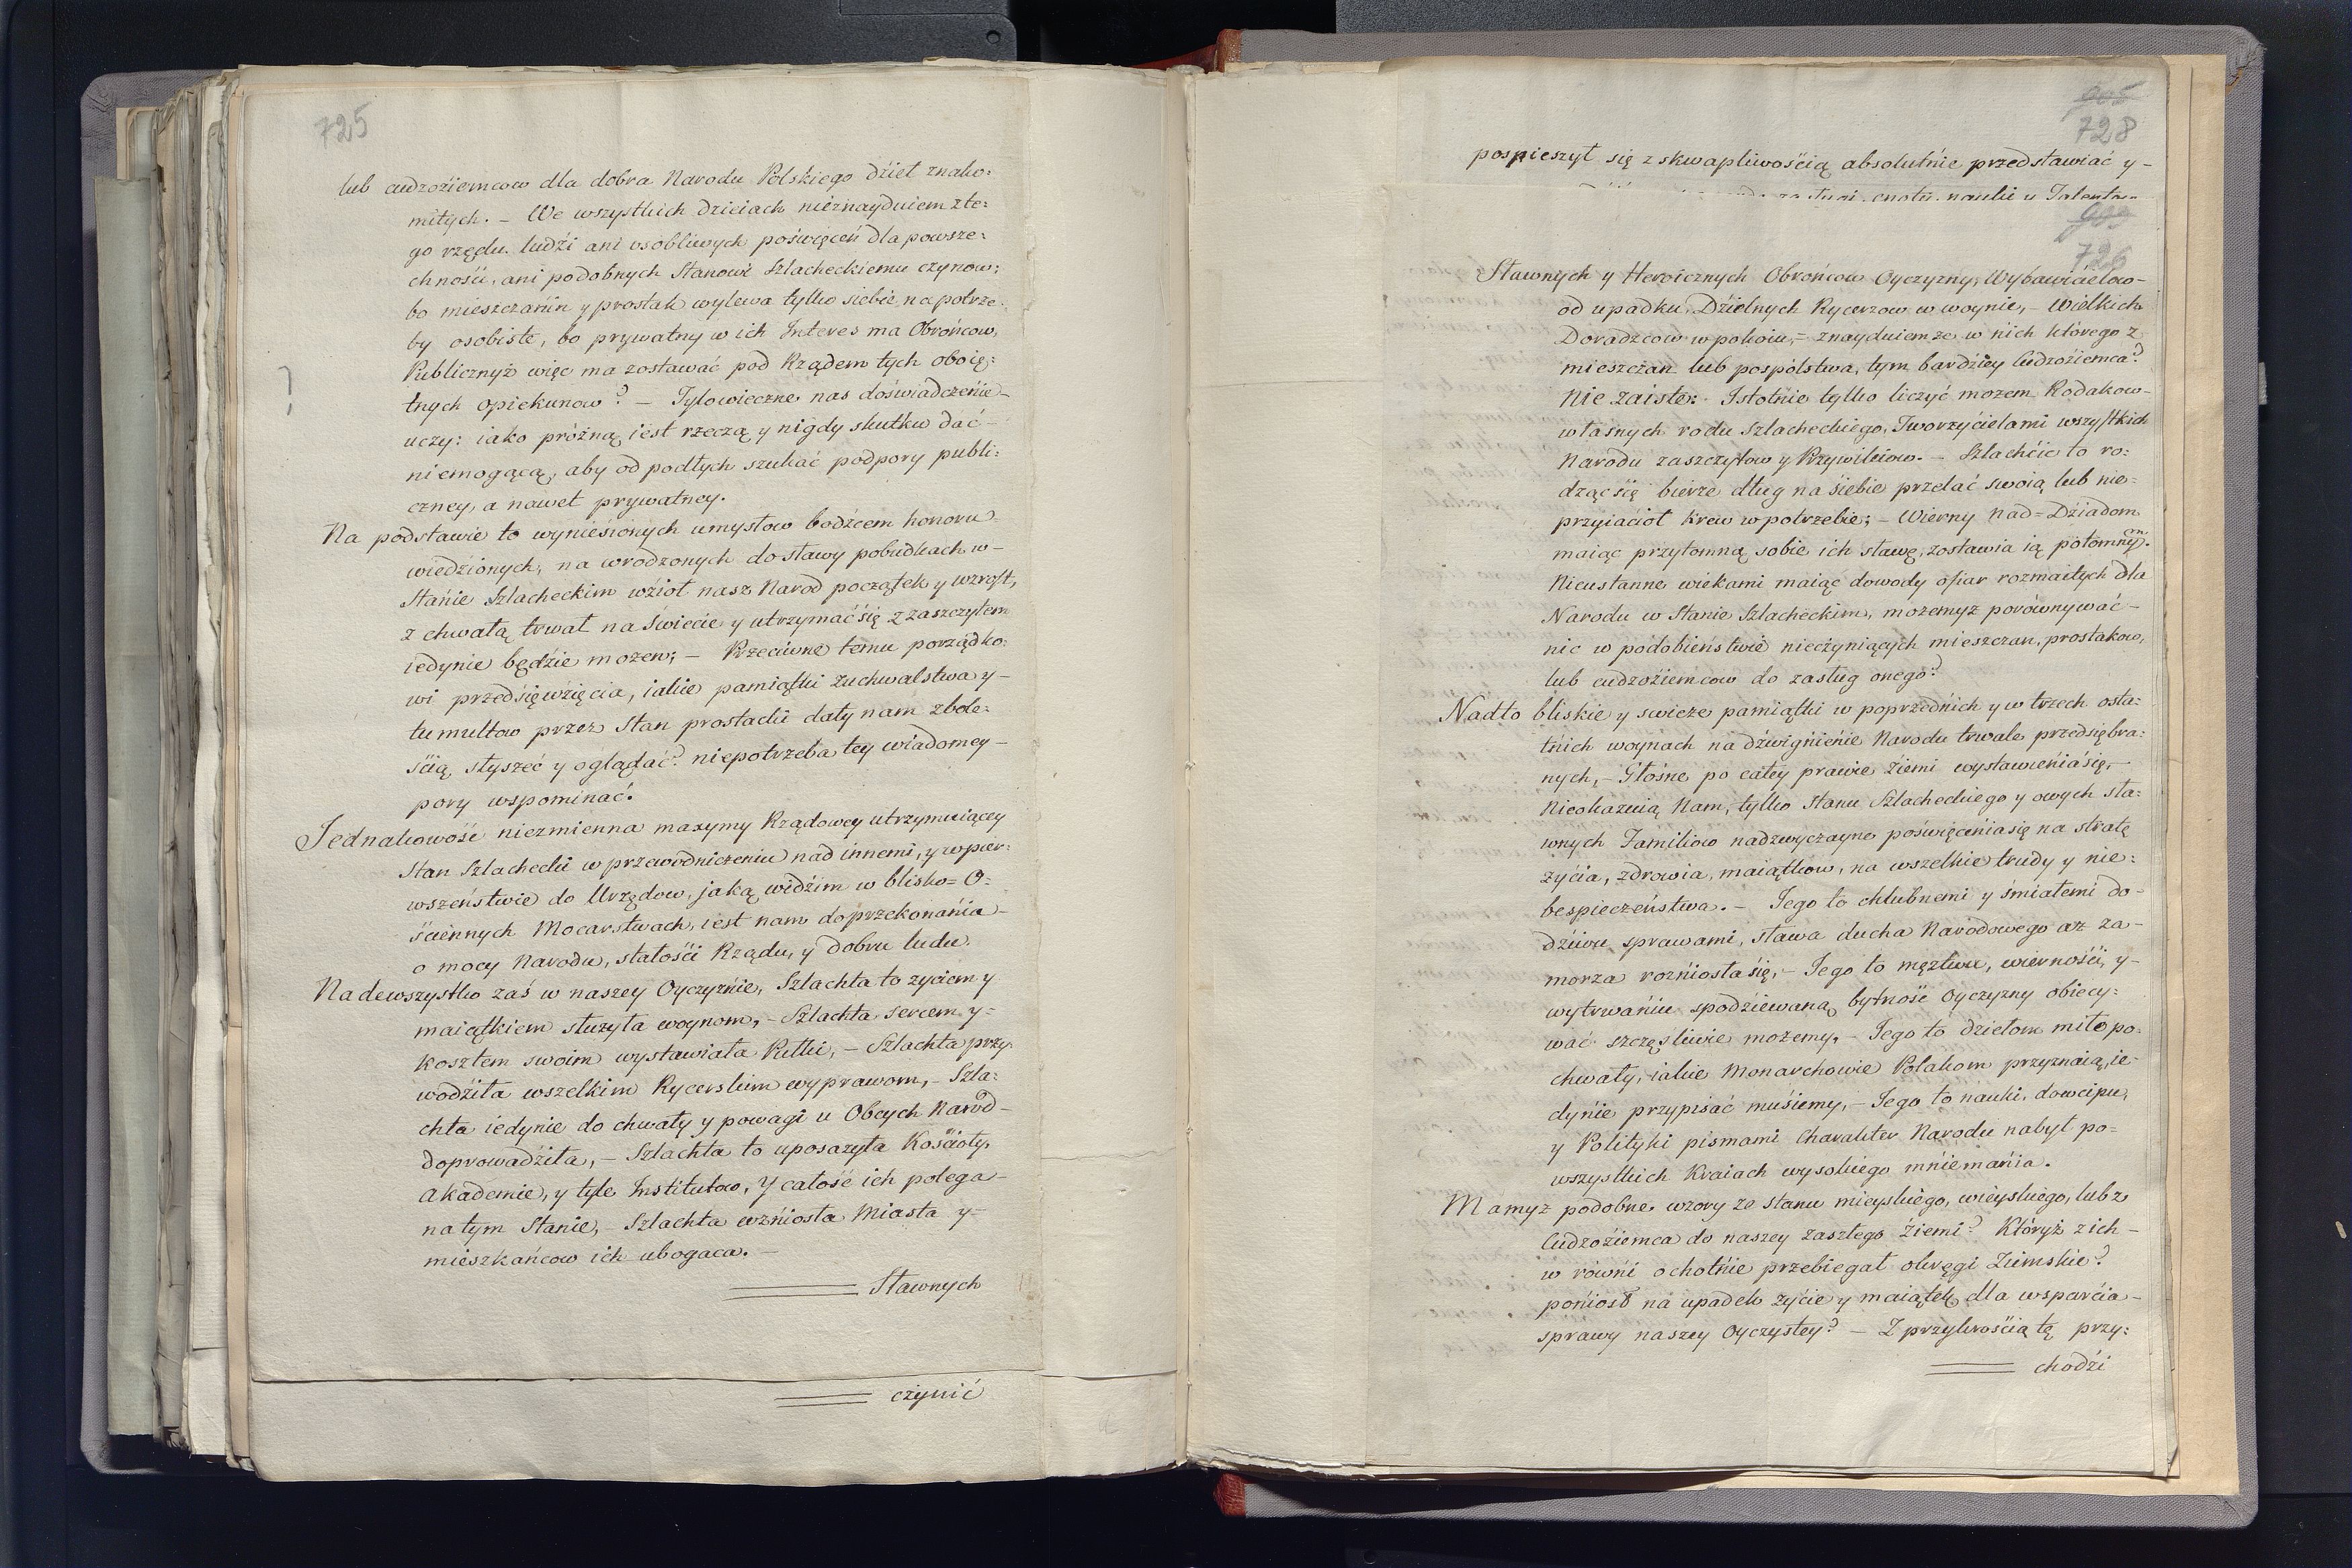 725
lub cudzoźiemcow dla dobra Narodu Polskiego dźieł znako:
mitych. – We wszystkich dzieiach nieznayduiem zte:
go rzędu ludźi ani osobliwych poświęceń dla powsze:
chnośći, ani podobnych Stanowi Szlacheckiemu czynow;
bo mieszczanin y prostak wylewa tylko siebie na potrze:
by osobiste, bo prywatny w ich Interes ma Obrońcow,
Publicznyż więc ma zostawać pod Rządem tych oboię:
tnych opiekunow? – Tylowieczne nas doświadczenie –
uczy: iako próżną iest rzeczą y nigdy skutku dać –
niemogącą, aby od podłych szukać podpory publi:
czney, a nawet prywatney.
Na podstawie to wynieśionych umysłow bodźcem honoru –
wiedźionych, na wrodzonych do sławy pobudkach w –
Stanie Szlacheckim wźioł nasz Narod początek y wzrost,
z chwałą trwał na świecie y utrzymać się z zaszczytem
iedynie będzie możen; – Przeciwne temu porządko:
wi przedsięwzięcia, iakie pamiątki zuchwalstwa y –
tumultow przez Stan prostacki dały nam zbole:
śćią słyszeć y oglądać? niepotrzeba tey wiadomey –
pory wspominać.
Jednakowość niezmienna maxymy Rządowey utrzymuiącey
Stan Szlachecki w przewodniczeniu nad innemi, y w pier:
wszeństwie do Urzędow, jaką widźim w blisko= O:
śćiennych Mocarstwach, iest nam do przekonania –
o mocy Narodu, stałośći Rządu, y dobru ludu.
Nadewszystko zaś w naszey Oyczyznie, Szlachta to zyciem y
maiątkiem służyła woynom, – Szlachta sercem y =
kosztem swoim wystawiała Pułki, – Szlachta przy:
wodźiła wszelkim Rycerskim wyprawom, – Szla:
chta iedynie do chwały y powagi u Obcych Narod –
doprowadźiła, – Szlachta to uposażyła Kośćioły,
Akademie, y tyle Institutow, y całość ich polega –
na tym Stanie, – Szlachta wzniosła Miasta y =
mieszkańcow ich ubogaca. –
Sławnych
czynić
728
pospieszył się z skwapliwośćią absolutnie przedstawiać y –
cnoty, nauki y Talenta
726
Sławnych y Heroicznych Obrońcow Oyczyzny, Wybawićielow –
od upadku, Dźielnych Rycerzow w woynie, – Wielkich
Doradzcow w pokoiu, – znayduiemże w nich którego z
mieszczan lub pospólstwa, tym bardźiey Cudzoźiemca?
Nie zaiste: Istotnie tylko liczyć mozem Rodakow –
własnych rodu Szlacheckiego, Tworzyćielami wszystkich
Narodu zaszczytow y Przywileiow. – Szlachćic to ro:
dząc się bierze dług na śiebie przelać swoią lub nie:
przyiaćioł krew w potrzebie; – Wierny Nad=Dźiadom
maiąc przytomną sobie ich sławę, zostawia ią potomnym.
Nieustanne wiekami maiąc dowody ofiar rozmaitych dla
Narodu w Stanie Szlacheckim, możemyż porównywać –
nic w podobieństwie nieczyniących mieszczan, prostakow,
lub cudzoźiemcow do zasług onego?
Nadto bliskie y swieże pamiątki w poprzednich y w trzech osta:
tnich woynach na dźwignienie Narodu trwale przedsiębra:
nych, – Głośne po całey prawie Ziemi wysławienia się, –
Nieokazuią Nam, tylko Stanu Szlacheckiego y owych sła:
wnych Familiow nadzwyczayne poświęcenia się na stratę
życia, zdrowia, maiątkow, na wszelkie trudy y nie:
bespieczeństwa. – Jego to chlubnemi y śmiałemi do –
dźiwu sprawami, sława ducha Narodowego aż za –
morza rozniosła się, – Jego to męztwu, wiernośći, y –
wytrwaniu spodźiewaną bytność Oyczyzny obiecy:
wać szczęśliwie możemy, – Jego to dziełom miłe po:
chwały, iakie Monarchowie Polakom przyznaią, ie:
dynie przypisać muśiemy, – Jego to nauki, dowcipu,
y Polityki pismami Charakter Narodu nabył po=
wszystkich Kraiach wysokiego mniemania.
Mamyż podobne wzory ze Stanu mieyskiego, wieyskiego, lub z
Cudzoźiemca do naszey zaszłego Źiemi? Któryż z ich –
w równi ochotnie przebiegał okręgi Ziemskie?
poniosł na upadek życie y maiątek dla wsparćia –
sprawy naszey Oyczystey? – Z przykrośćią tę przy:
chodźi